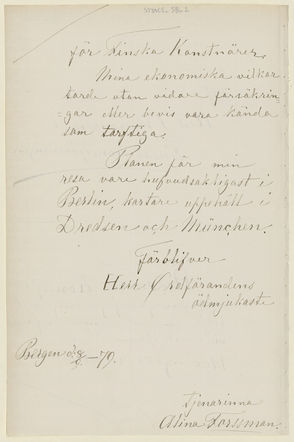 för Finska Konstnärer.
Mina ekonomiska vilkor
torde utan vidare försäkrin-
gar eller bevis vara kända
som torftiga.
Planen för min
resa vore hufvudsakligast i
Berlin, kortare uppehåll i
Dresden och München.
Förblifver
Herr Ordförandens
ödmjukaste
Bergen d. –79.
tjenarinna
Alina Forssman.